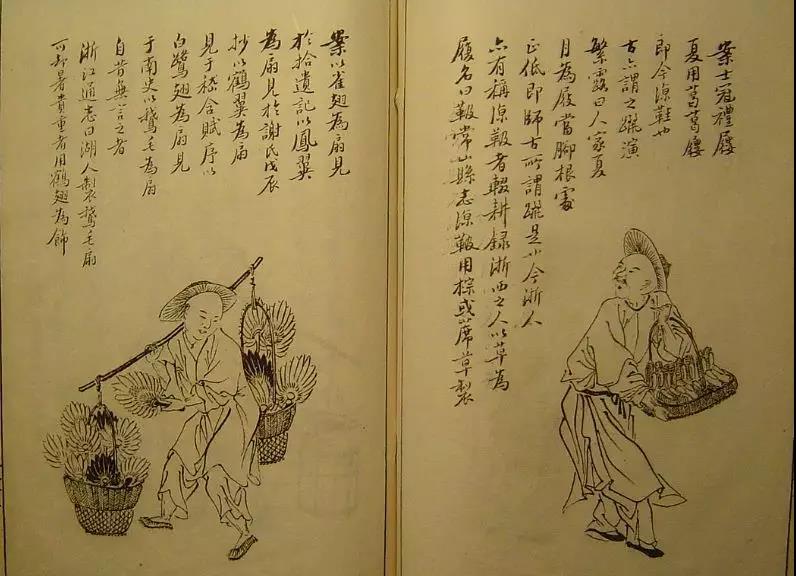 案士冠禮屨
夏用葛葛屨
即今涼鞋也
古亦謂之躧演
繁露曰人家夏
月為屐當脚根處
正低即師古所謂躧是也今浙人
亦有稱涼靸者輟耕録浙西之人以草為
履名曰靸常山縣志涼靸用棕或蓆草製
案以雀翅為扇見
於拾遺記以鳳翼
為扇見於謝氏戊辰
抄以鶴翼為扇
見于嵇含賦序以
白鷺翅為扇見
于南史以鵞毛為扇
自昔無言之者
浙江通志曰湖人製鵞毛扇
可却暑貴重者用鶴翅為飾